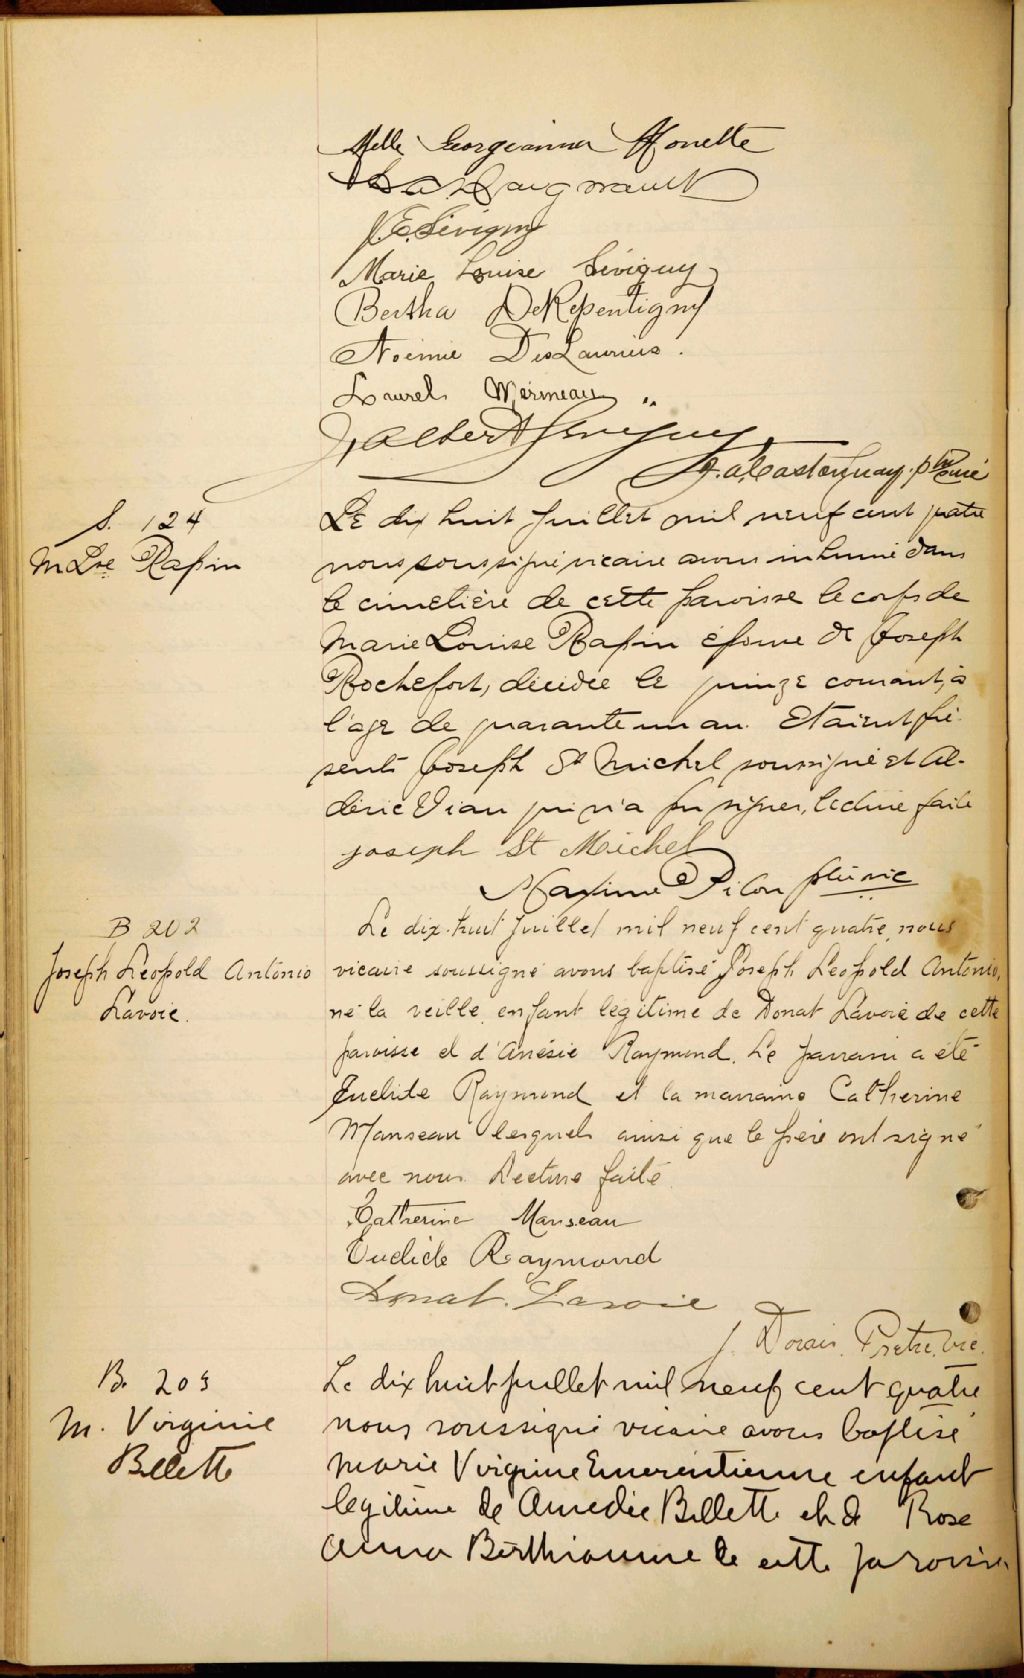 Melle Georgianna Monette
Daigneault
J. E. Sévigny
Marie Louise Sévigny
Bertha DeRepentigny
Noémie DesLauriers.
Laurels Mermeau
J. Albert Sévigny
J. A. Castonguay ptre curé
S. 124
M Lse Rapin
Le dix huit juillet mil neuf cent quatre
nous soussigné vicaire avons inhumé dans
le cimetière de cette paroisse le corps de
Marie Louise Rapin épouse de Joseph
Rochefort, décédée le quinze courant, à
l'age de quarante un an. Etaient pré-
sents Joseph St Michel soussigné et Al-
déric Viau qui n'a pu signer, lecture faite
Joseph St Michel
Maxime Pilon ptre vic
B 202
Joseph Léopold Antonio
Lavoie.
Le dix-huit juillet mil neuf cent quatre, nous
vicaire soussigné avons baptisé Joseph Léopold Antonio,
né la veille, enfant légitime de Donat Lavoie de cette
paroisse et d'Anésie Raymond. Le parrain a été
Euclide Raymond et la marraine Catherine
Manseau lesquels ainsi que le père ont signé
avec nous. Lecture faite
Catherine Manseau
Euclide Raymond
Donat. Lavoie
J. Dorais, Prêtre, vic.
B. 203
M. Virginie
Billette
Le dix huit juillet mil neuf cent quatre
nous soussigné vicaire avons baptisé
Marie Virginie Emerentienne enfant
légitime de Amedée Billette et de Rose
Anna Berthiaume de cette paroisse